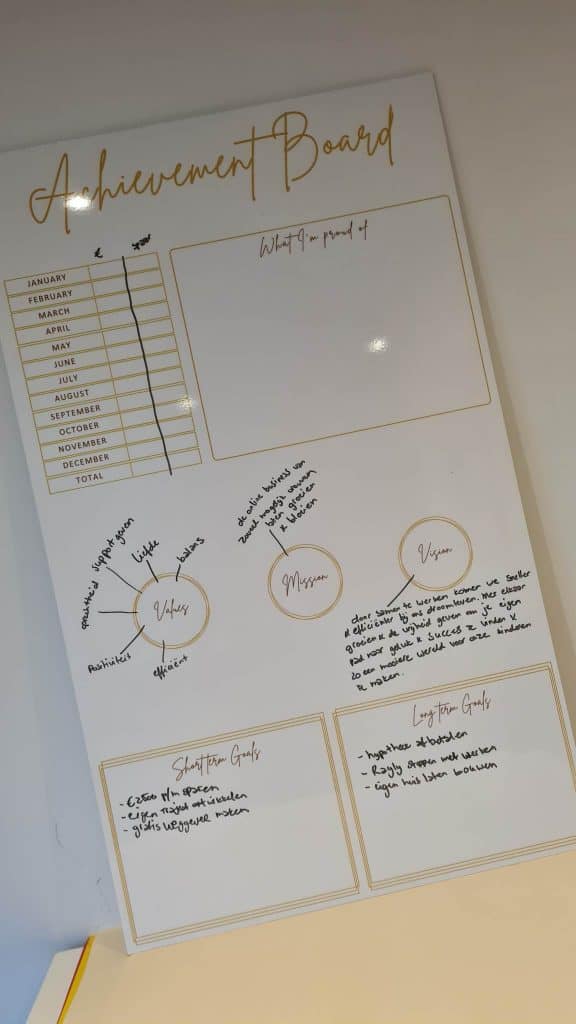 Achievement Board
€ spaar
What I'm proud of
JANUARY
FEBRUARY
MARCH
APRIL
MAY
JUNE
JULY
AUGUST
SEPTEMBER
OCTOBER
NOVEMBER
DECEMBER
TOTAL
oprechtheid
support geven
liefde
balans
Values
Positiviteit
efficiënt
de online business van
zoveel mogelijk vrouwen
laten groeien
& bloeien
Mission
Vision
door samen te werken komen we sneller
& efficiënter bij ons droomleven. Met elkaar
groeien & de vrijheid geven om je eigen
pad naar geluk & succes te vinden &
zo een mooiere wereld voor onze kinderen
te maken.
Short term Goals
- €2500 p/m sparen
- eigen traject ontwikkelen
- gratis weggever maken
Long term Goals
- hypotheek afbetalen
- stoppen met werken
- eigen huis laten bouwen